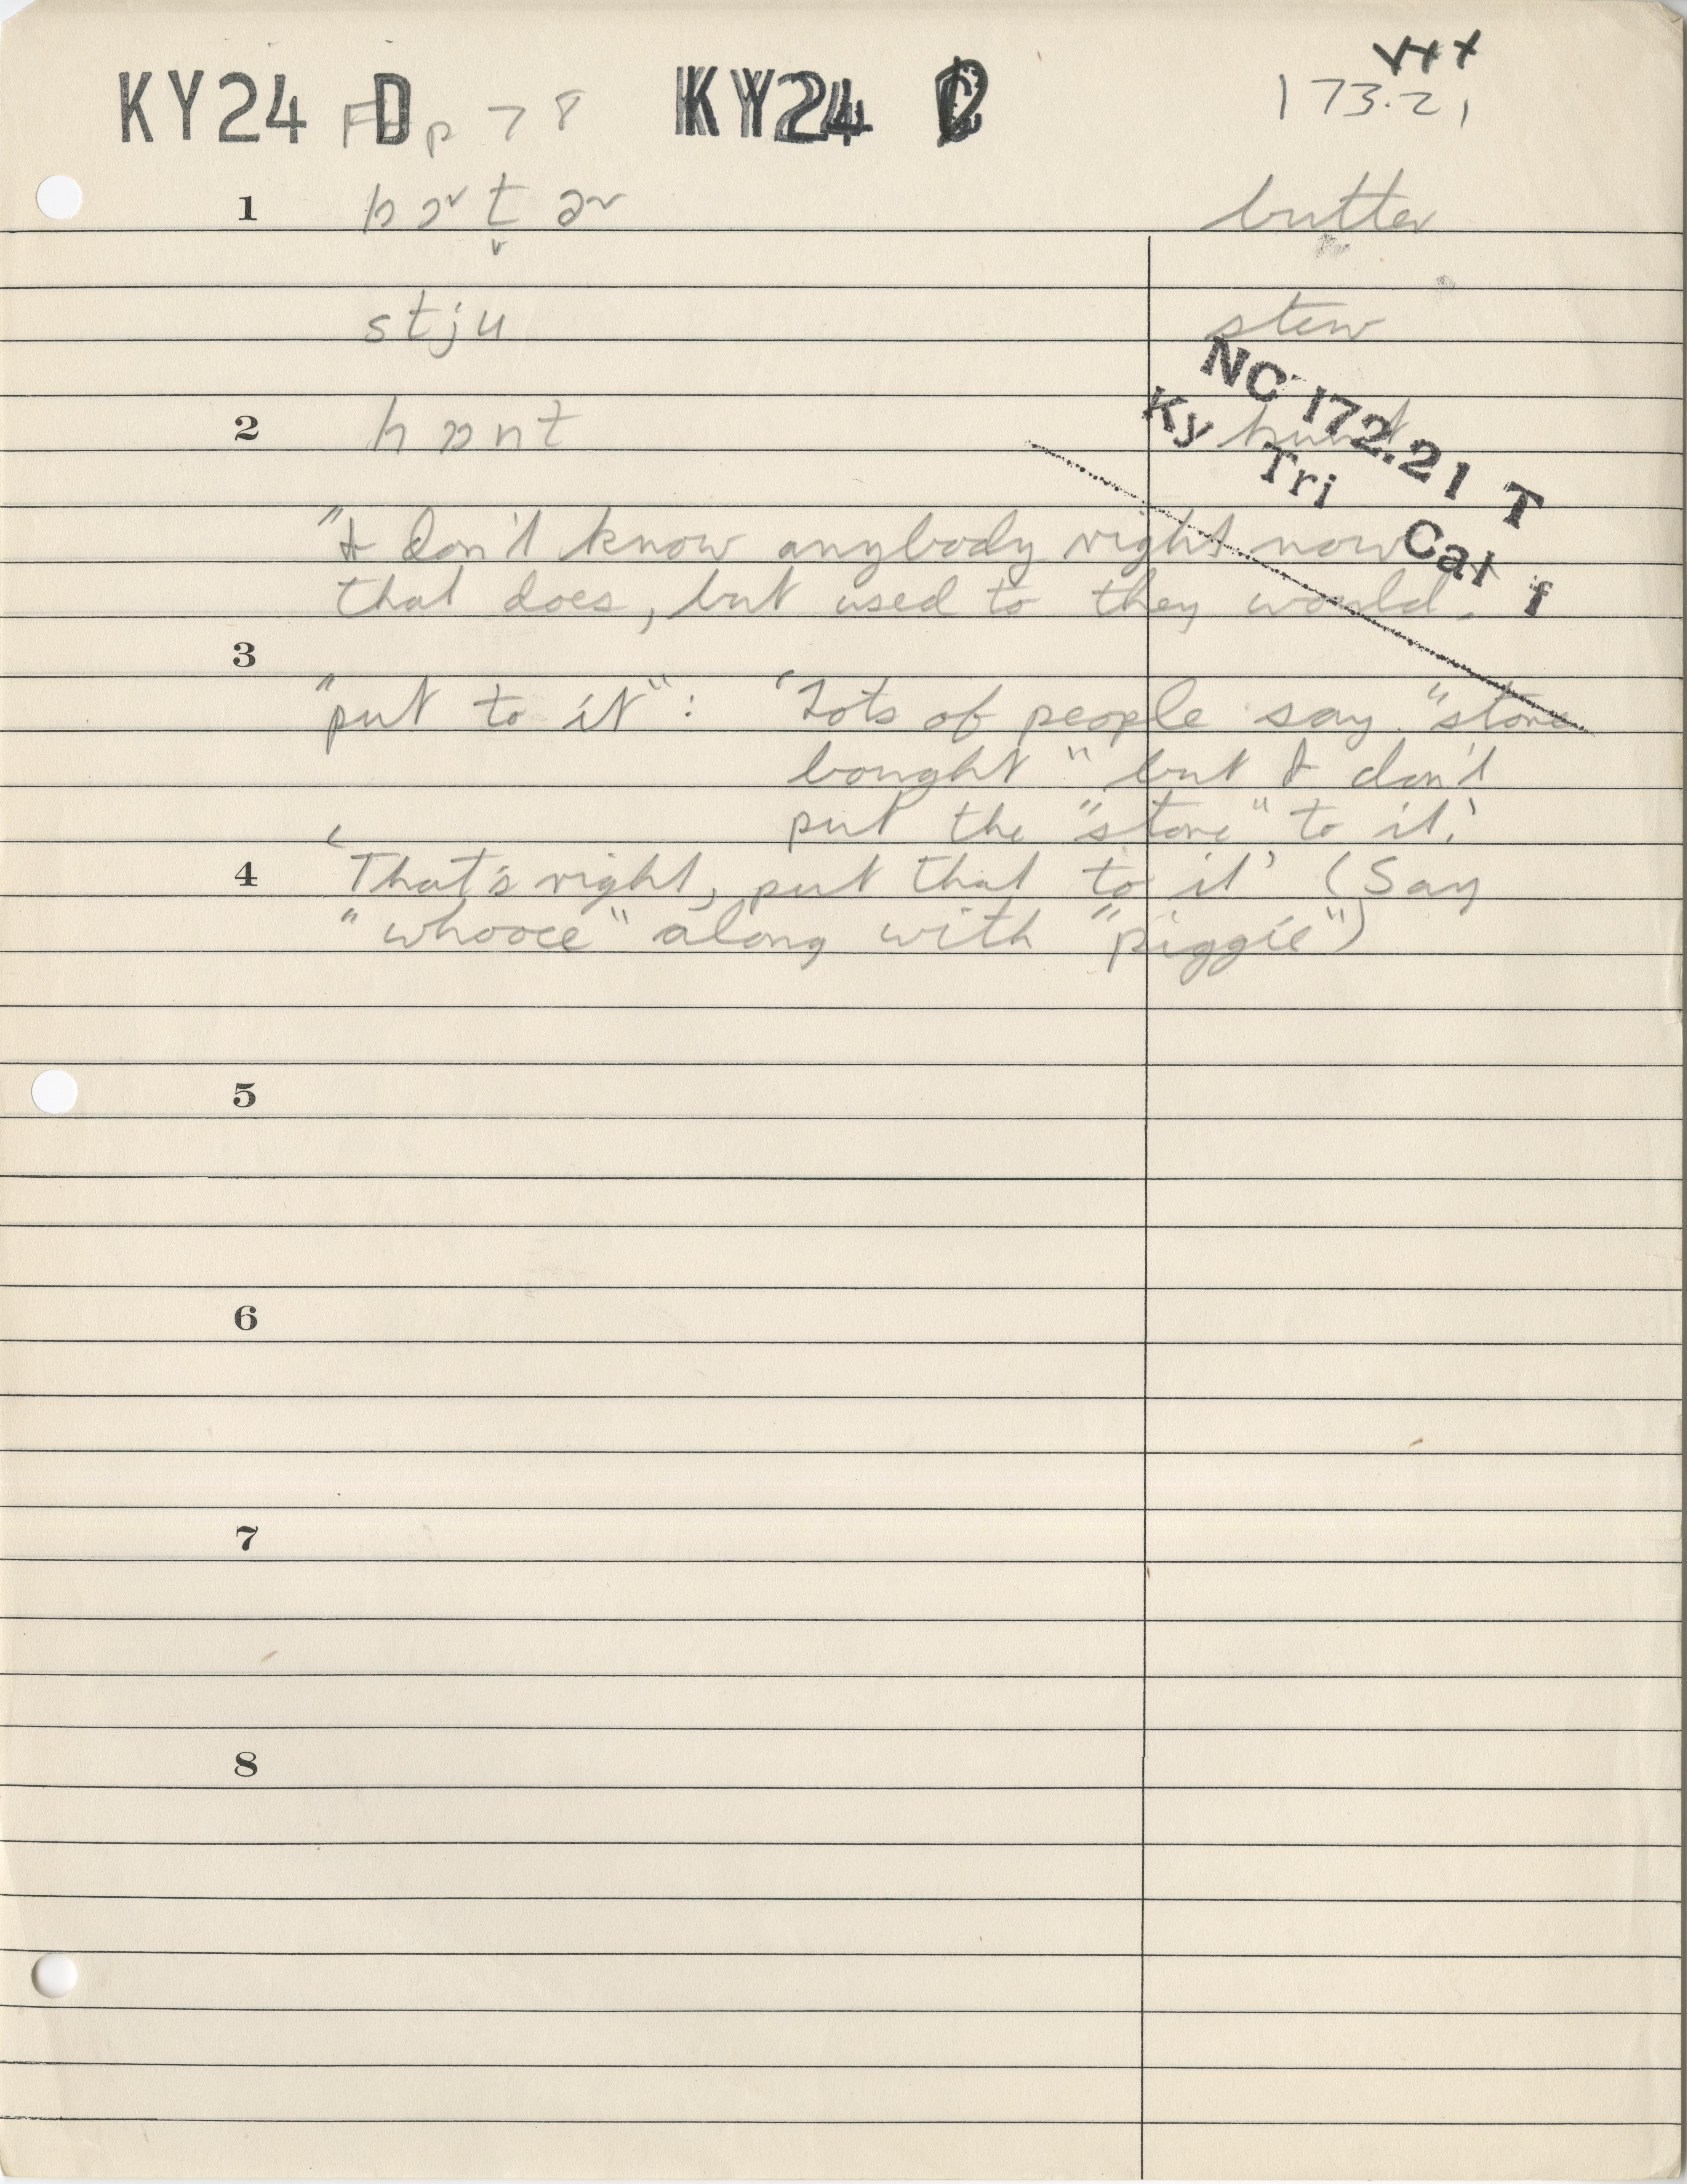 KY24 D p 78 KY24
173.21
1 butter
stju stew
NC 172.21 T
Ky Tri Cal f
2 hunt
"I don't know anybody right now
that does, but used to they would.
3
"put to it": 'Lots of people say "store
bought" but I don't
put the "store" to it.'
4 'That's right, put that to it' (Say
"whooee" along with "piggie")
5
6
7
8